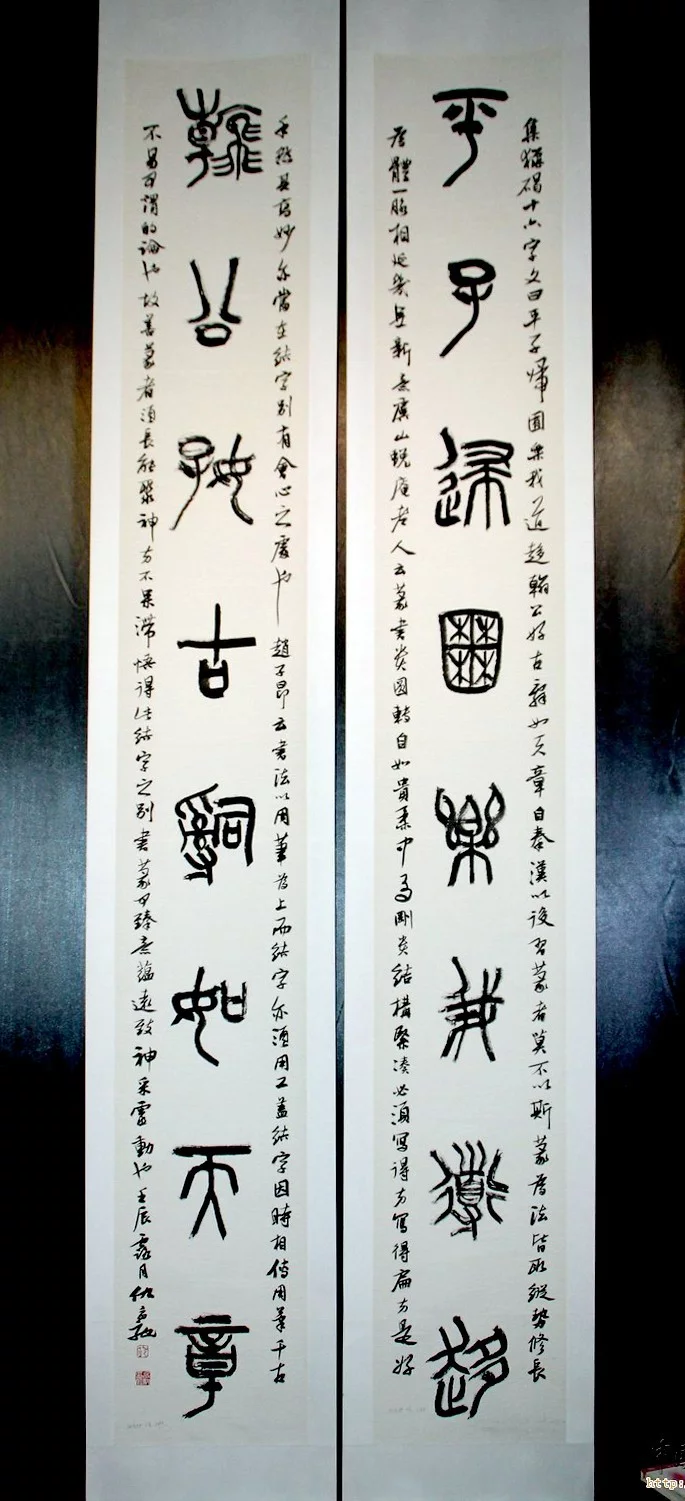 集獵碣十六字文曰平子歸囿樂我道趍翰公好古辭如天章自秦漢以後習篆者莫不以斯篆為法皆取縱勢修長
平子歸囿樂我道趍
體一脈相延幾無新意廣山蛻庵老人云篆書貴圓轉自如貴柔中為剛貴結構緊湊必須寫得方寫得扁方是好
手然其高妙亦當在結字別有會心之處也趙子昂云書法以用筆為上而結字亦須用工蓋結字因時相傳用筆千古
翰公好古辭如天章
不易可謂的論也故善篆者須長能聚神方不呆滯悟得此結字之別書篆可臻意蘊遠致神采靈動也壬辰露月
http: